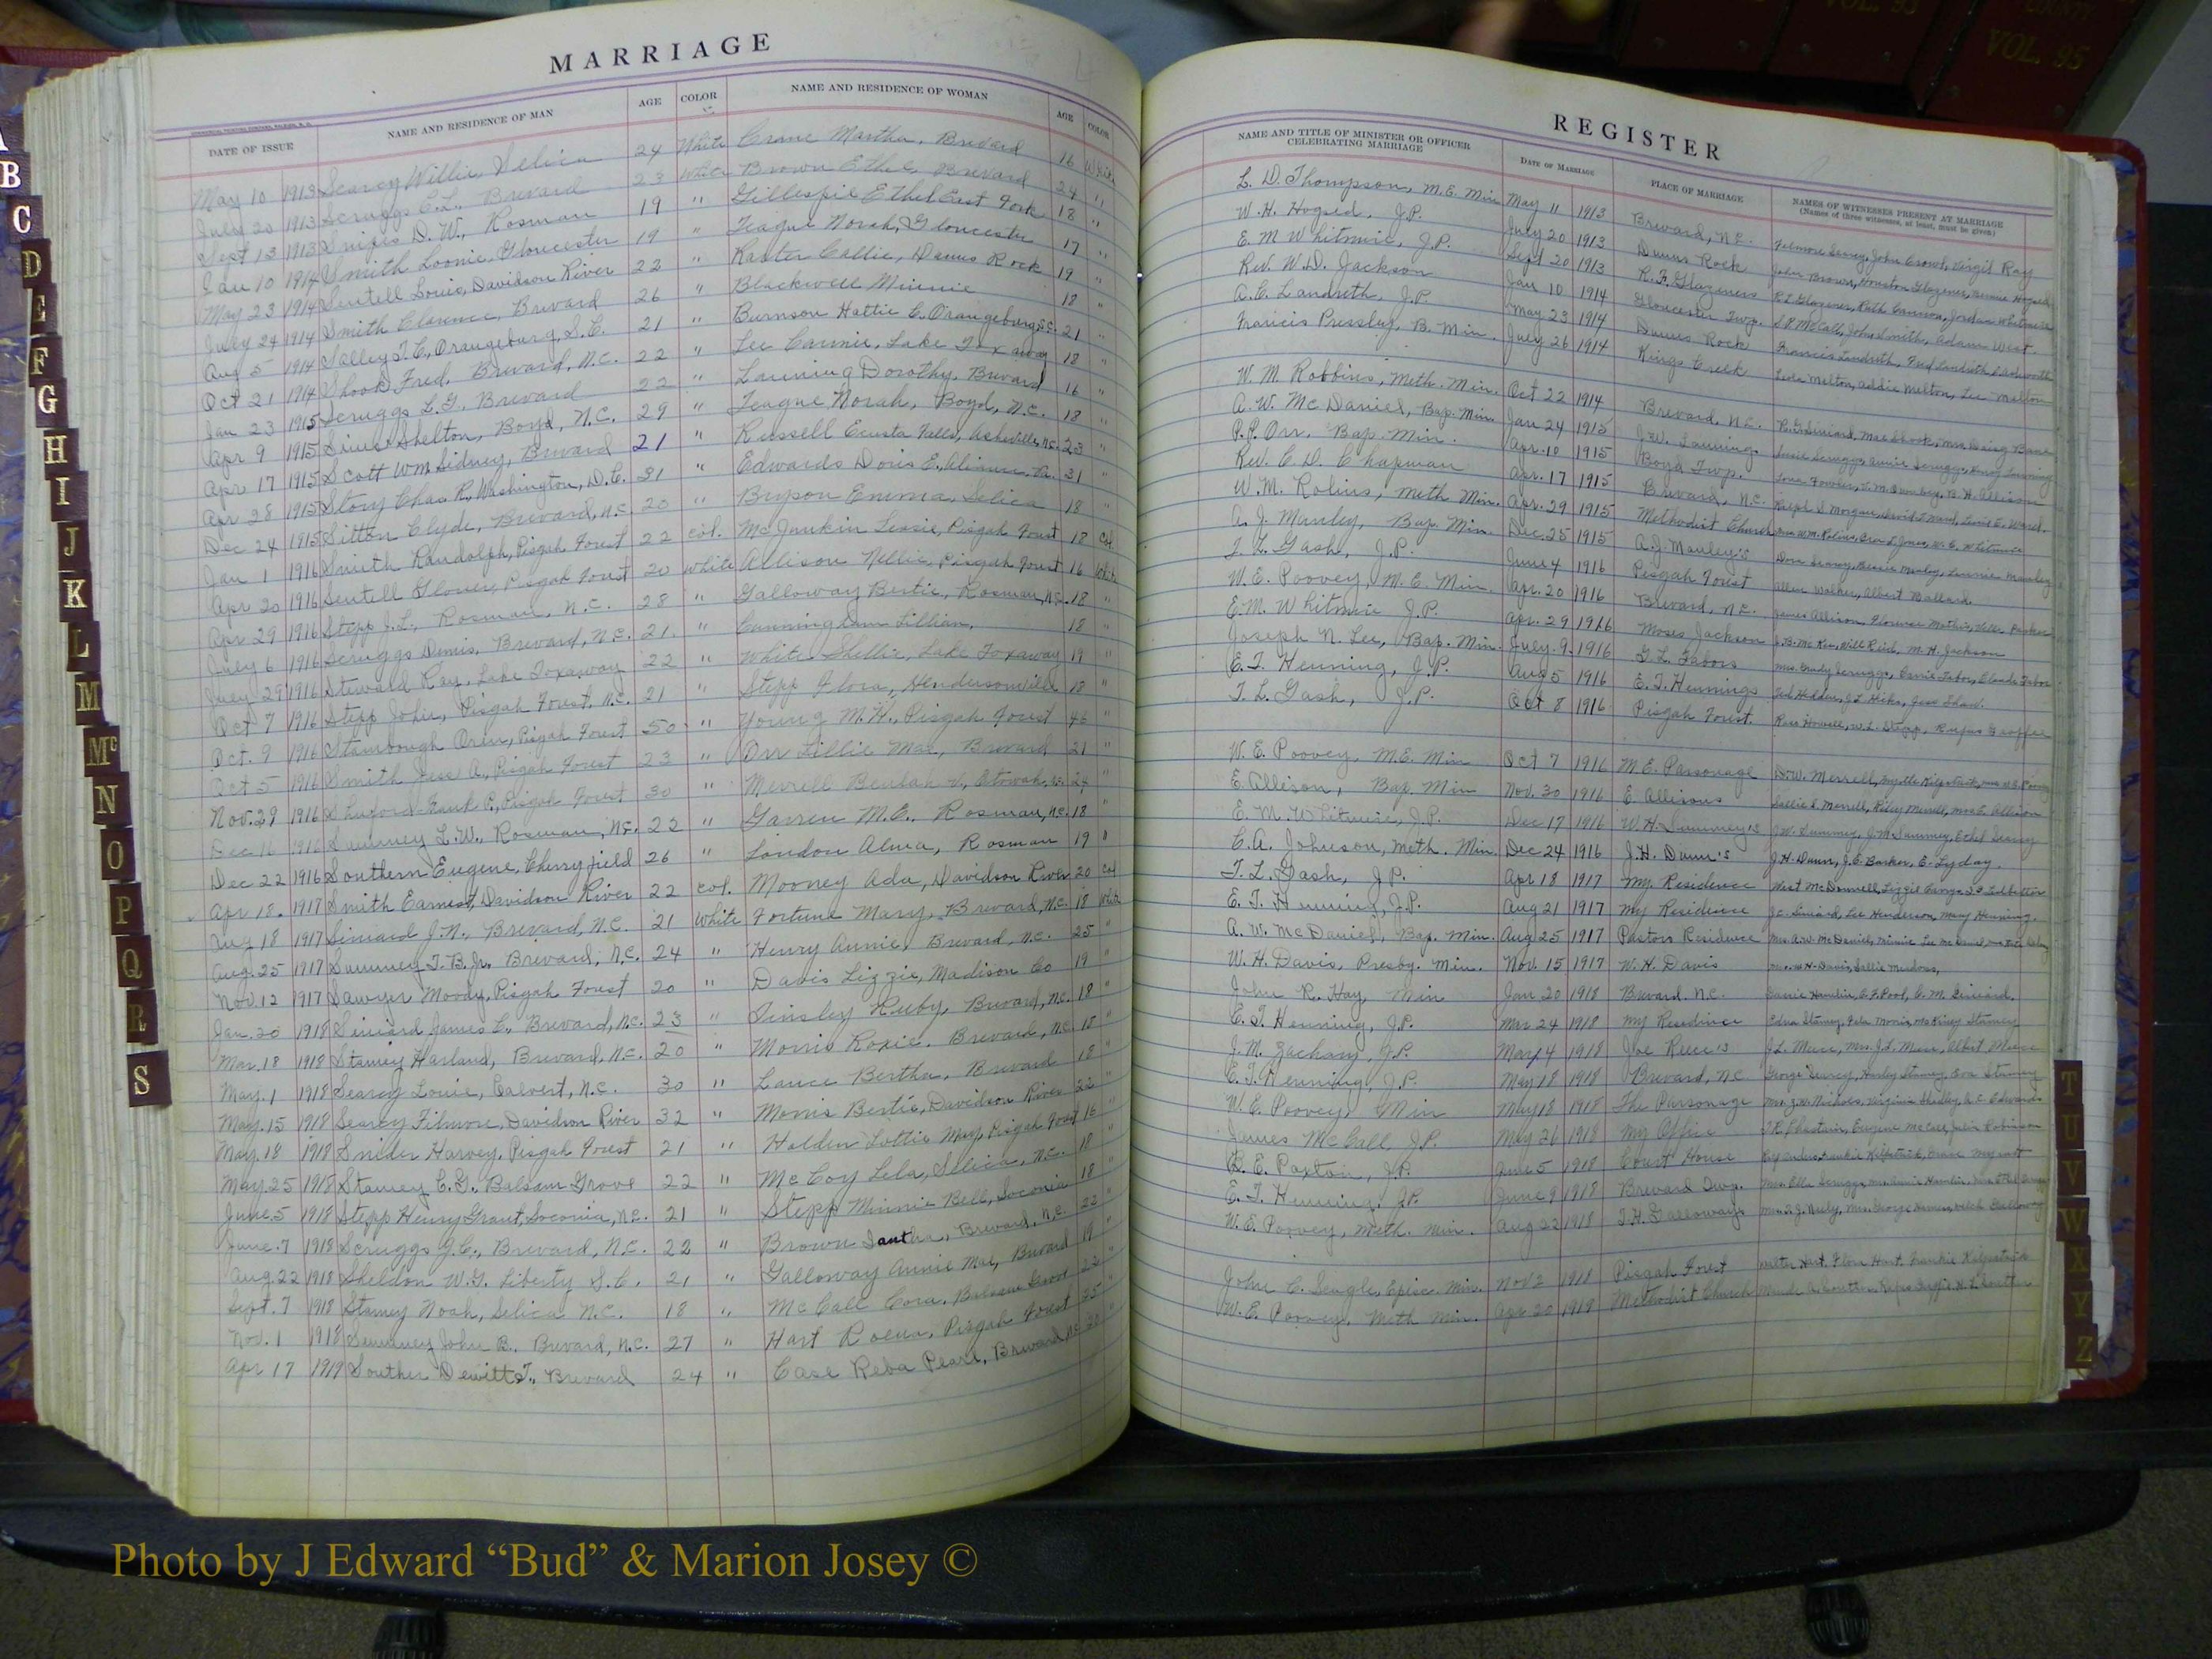 VOL. 93
COUNTY
VOL. 95
MARRIAGE
DATE OF ISSUE NAME AND RESIDENCE OF MAN AGE COLOR NAME AND RESIDENCE OF WOMAN AGE COLOR
May 10 1913 Searcy Willie, Selica 24 White Crane Martha, Brevard 16 White
July 20 1913 Scruggs C.L. Brevard 23 White Brown Ethel, Brevard 24 "
Sept 13 1913 Snipes D. W., Rosman 19 " Gillespie Ethel East Fork 18 "
Jan 10 1914 Smith Loonie, Gloucester 19 " Teague Norah, Gloucester 17 "
May 23 1914 Sentell Louis, Davidson River 22 " Raxter Callie, Dunns Rock 19 "
July 24 1914 Smith Clarence, Brevard 26 " Blackwell Minnie 18 "
Aug 5 1914 Salley T. C., Orangeburg, S.C. 21 " Burnson Hattie C. Orangeburg S.C. 21 "
Oct 21 1914 Shook Fred, Brevard, N.C. 22 " Lee Carmie, Lake Toxaway 18 "
Jan 23 1915 Scruggs L.G. Brevard 22 " Lanning Dorothy, Brevard 16 "
Apr 9 1915 Shelton, Boyd, N.C. 29 " Teague Norah, Boyd, N.C. 18 "
Apr 17 1915 Scott Wm Sidney, Brevard 21 " Russell Ecusta Falls, Asheville, N.C. 23 "
Apr 28 1915 Story Chas R., Washington, D.C. 31 " Edwards Doris E. 31 "
Dec 24 1915 Sitton Clyde, Brevard, N.C. 20 " Bryson Emma, Selica 18 "
Jan 1 1916 Smith Randolph, Pisgah Forest 22 col. McJunkin Lessie, Pisgah Forest 18 col.
Apr 20 1916 Sentell Glover, Pisgah Forest 20 White Allison Nellie, Pisgah Forest 16 White
Apr 29 1916 Stepp J.L., Rosman, N.C. 28 " Galloway Bertie, Rosman, N.C. 18 "
July 6 1916 Scruggs Dennis, Brevard, N.C. 21. " Cunningham Lillian, 18 "
July 29 1916 Steward Roy, Lake Toxaway 22 " White Shellie, Lake Toxaway 19 "
Oct 7 1916 Stepp John, Pisgah Forest, N.C. 21 " Stepp Flora, Hendersonville 18 "
Oct. 9 1916 Stambough Oren, Pisgah Forest 50 " Young M.H., Pisgah Forest 46 "
Oct 5 1916 Smith Jess A., Pisgah Forest 23 " Orr Lillie Mae, Brevard 21 "
Nov. 29 1916 Shuford Frank P., Pisgah Forest 30 " Merrell Beulah V., Etowah, N.C. 24 "
Dec 16 1916 Summey L.W., Rosman, N.C. 22 " Garren M.E., Rosman, N.C. 18 "
Dec 22 1916 Southern Eugene, Cherryfield 26 " London Alma, Rosman 19 "
Apr 18. 1917 Smith Earnest, Davidson River 22 col. Mooney Ada, Davidson River 20 col
Aug 18 1917 Siniard J.N., Brevard, N.C. 21 White Fortune Mary, Brevard, N.C. 18 White
Aug. 25 1917 Summey T.B. Jr., Brevard, N.C. 24 " Henry Annie, Brevard, N.C. 25 "
Nov. 12 1917 Sawyer Moody, Pisgah Forest 20 " Davis Lizzie, Madison Co 19 "
Jan. 20 1918 Siniard James L., Brevard, N.C. 23 " Tinsley Ruby, Brevard, N.C. 18 "
Mar. 18 1918 Stamey Harland, Brevard, N.C. 20 " Morris Roxie, Brevard, N.C. 15 "
May. 1 1918 Searcy Louie, Calvert, N.C. 30 " Lance Bertha, Brevard 18 "
May. 15 1918 Searcy Filmore, Davidson River 32 " Morris Bertie, Davidson River 22 "
May. 18 1918 Snider Harvey, Pisgah Forest 21 " Holden Lottie May, Pisgah Forest 16 "
May. 25 1918 Stamey C.G., Balsam Grove 22 " McCoy Lela, Selica, N.C. 18 "
June. 5 1918 Stepp Henry Grant, Soconia, N.C. 21 " Stepp Minnie Bell, Soconia 18 "
June. 7 1918 Scruggs J.C., Brevard, N.C. 22 " Brown Iantha, Brevard, N.C. 22 "
Aug. 22 1918 Sheldon W.G. Liberty S.C. 21 " Galloway Annie Mae, Brevard 19 "
Sept. 7 1918 Stamey Noah, Selica N.C. 18 " McCall Cora, Balsam Grove 22 "
Nov. 1 1918 Summey John B., Brevard, N.C. 27 " Hart Roena, Pisgah Forest 25 "
Apr 17 1919 Souther Dewitt T., Brevard 24 " Case Reba Pearl, Brevard N.C. 20 "
REGISTER
NAME AND TITLE OF MINISTER OR OFFICER CELEBRATING MARRIAGE DATE OF MARRIAGE PLACE OF MARRIAGE NAMES OF WITNESSES PRESENT AT MARRIAGE
(Names of three witnesses, at least, must be given)
L. D. Thompson, M.E. Min May 11 1913 Brevard, N.C. Filmore Searcy, John Crowl, Virgil Ray
W. H. Hogsed, J.P. July 20 1913 Dunns Rock John Brown, Houston Glazener, Hogsed
E. M Whitmire, J.P. Sept 20 1913 R.F. Glazeners R.F. Glazener, Ruth Cannon, Jordan Whitmire
Rev. W.D. Jackson Jan 10 1914 Gloucester Twp. S.P. McCall, John Smith, Adam West.
A. C. Landreth, J.P. May 23 1914 Dunns Rock Francis Landreth, Fred Landreth
Francis Pressley, B. Min. July 26 1914 Kings Creek Leda Melton, Addie Melton, Lee Melton
W. M. Robbins, Meth. Min. Oct 22 1914 Brevard, N.C. Mae Shook
A. W. McDaniel, Bap. Min. Jan 24 1915 J.W. Lannings Susie Scruggs, Annie Scruggs, Lanning
P.P. Orr. Bap. Min. Apr. 10 1915 Boyd Twp. B. H. Allison
Rev. C. D. Chapman Apr. 17 1915 Brevard, N.C. Ralph S. Morgan
W. M. Robins, Meth Min. Apr. 29 1915 Methodist Church Mrs W.M. Robins, W. E. Whitmire
A. J. Manley, Bap. Min. Dec. 25 1915 A.J. Manley's Dora Searcy, Bessie Manley, Manley
T. L. Gash, J.P. June 4 1916 Pisgah Forest Allen Walker, Albert Ballard.
W. E. Poovey, M.E. Min. Apr. 20 1916 Brevard, N.C. James Allison
E.M. Whitmire J.P. Apr. 29 1916 Moses Jackson Will Reid, M. H. Jackson
Joseph N. Lee, Bap. Min. July. 9. 1916 G L. Tabors Mrs. Scruggs
E.T. Henning, J.P. Aug 5 1916 E.T. Hennings J.L. Hicks, Jess Shaw.
T. L. Gash, J.P. Oct 8 1916 Pisgah Forest. Ross Howell, W.L. Stepp, Rufus
W. E. Poovey, M.E. Min Oct 7 1916 M E. Parsonage D.W. Merrell, Myrtle Kilpatrick
E. Allison, Bap. Min Nov. 30 1916 E. Allisons Sallie L. Merrell, Riley Merrell, Mrs E. Allison
E. M. Whitmire, J.P. Dec 17 1916 W.H. Summey's J.W. Summey, J.M. Summey, Ethel Searcy
C.A. Johnson, Meth. Min. Dec 24 1916 J.H. Dunn's J.H. Dunn, J.C. Barker, E. Lyday.
T. L. Gash, J.P. Apr 18 1917 My Residence West McDonnell
E. T. Henning, J.P. Aug 21 1917 My Residence J.C. Siniard, Lee Henderson, Mary Henning.
A. W. McDaniel, Bap. Min. Aug 25 1917 Pastors Residence Mrs. A.W. McDaniel, Minnie Lee McDaniel
W. H. Davis, Presby. Min. Nov. 15 1917 W. H. Davis Mrs. W.H. Davis, Sallie
John R. Hay, Min Jan 20 1918 Brevard. N.C. C. F. Pool, C. M. Siniard.
E. T. Henning, J.P. Mar 24 1918 My Residence Edna Stamey, Morris, McKinley Stamey
J. M. Zachary, J.P. May 4 1918 Joe Reece's J.L. Meece, Mrs. J.L. Meece, Albert Meece
E. T. Henning, J.P. May 18 1918 Brevard, N.C George Searcy, Harley Stamey, Eva Stamey
W. E. Poovey, Min May 18 1918 The Parsonage Mrs. Nicholson, Virginia
James McCall J.P. May 26 1918 My Office Eugene McCall, Julia Robinson
B. E. Paxton, J.P. June 5 1918 Court House Frankie Kilpatrick
E. T. Henning, J.P. June 9 1918 Brevard Twp. Mrs. Ella Scruggs, Mrs. Annie Hamlin
W. E. Poovey, Meth. Min. Aug 22 1918 T.H. Galloways Mrs. George
John C. Seagle, Episc. Min. Nov 2 1918 Pisgah Forest Hart, Flora Hart, Frankie Kilpatrick
W. E. Poovey, Meth Min. Apr 20 1919 Methodist Church Maude A. Souther
A
B
C
D
E
F
G
H
I
J
K
L
M
Mc
N
O
P
Q
R
S
T
U
V
W
X
Y
Z
Photo by J Edward “Bud” & Marion Josey ©